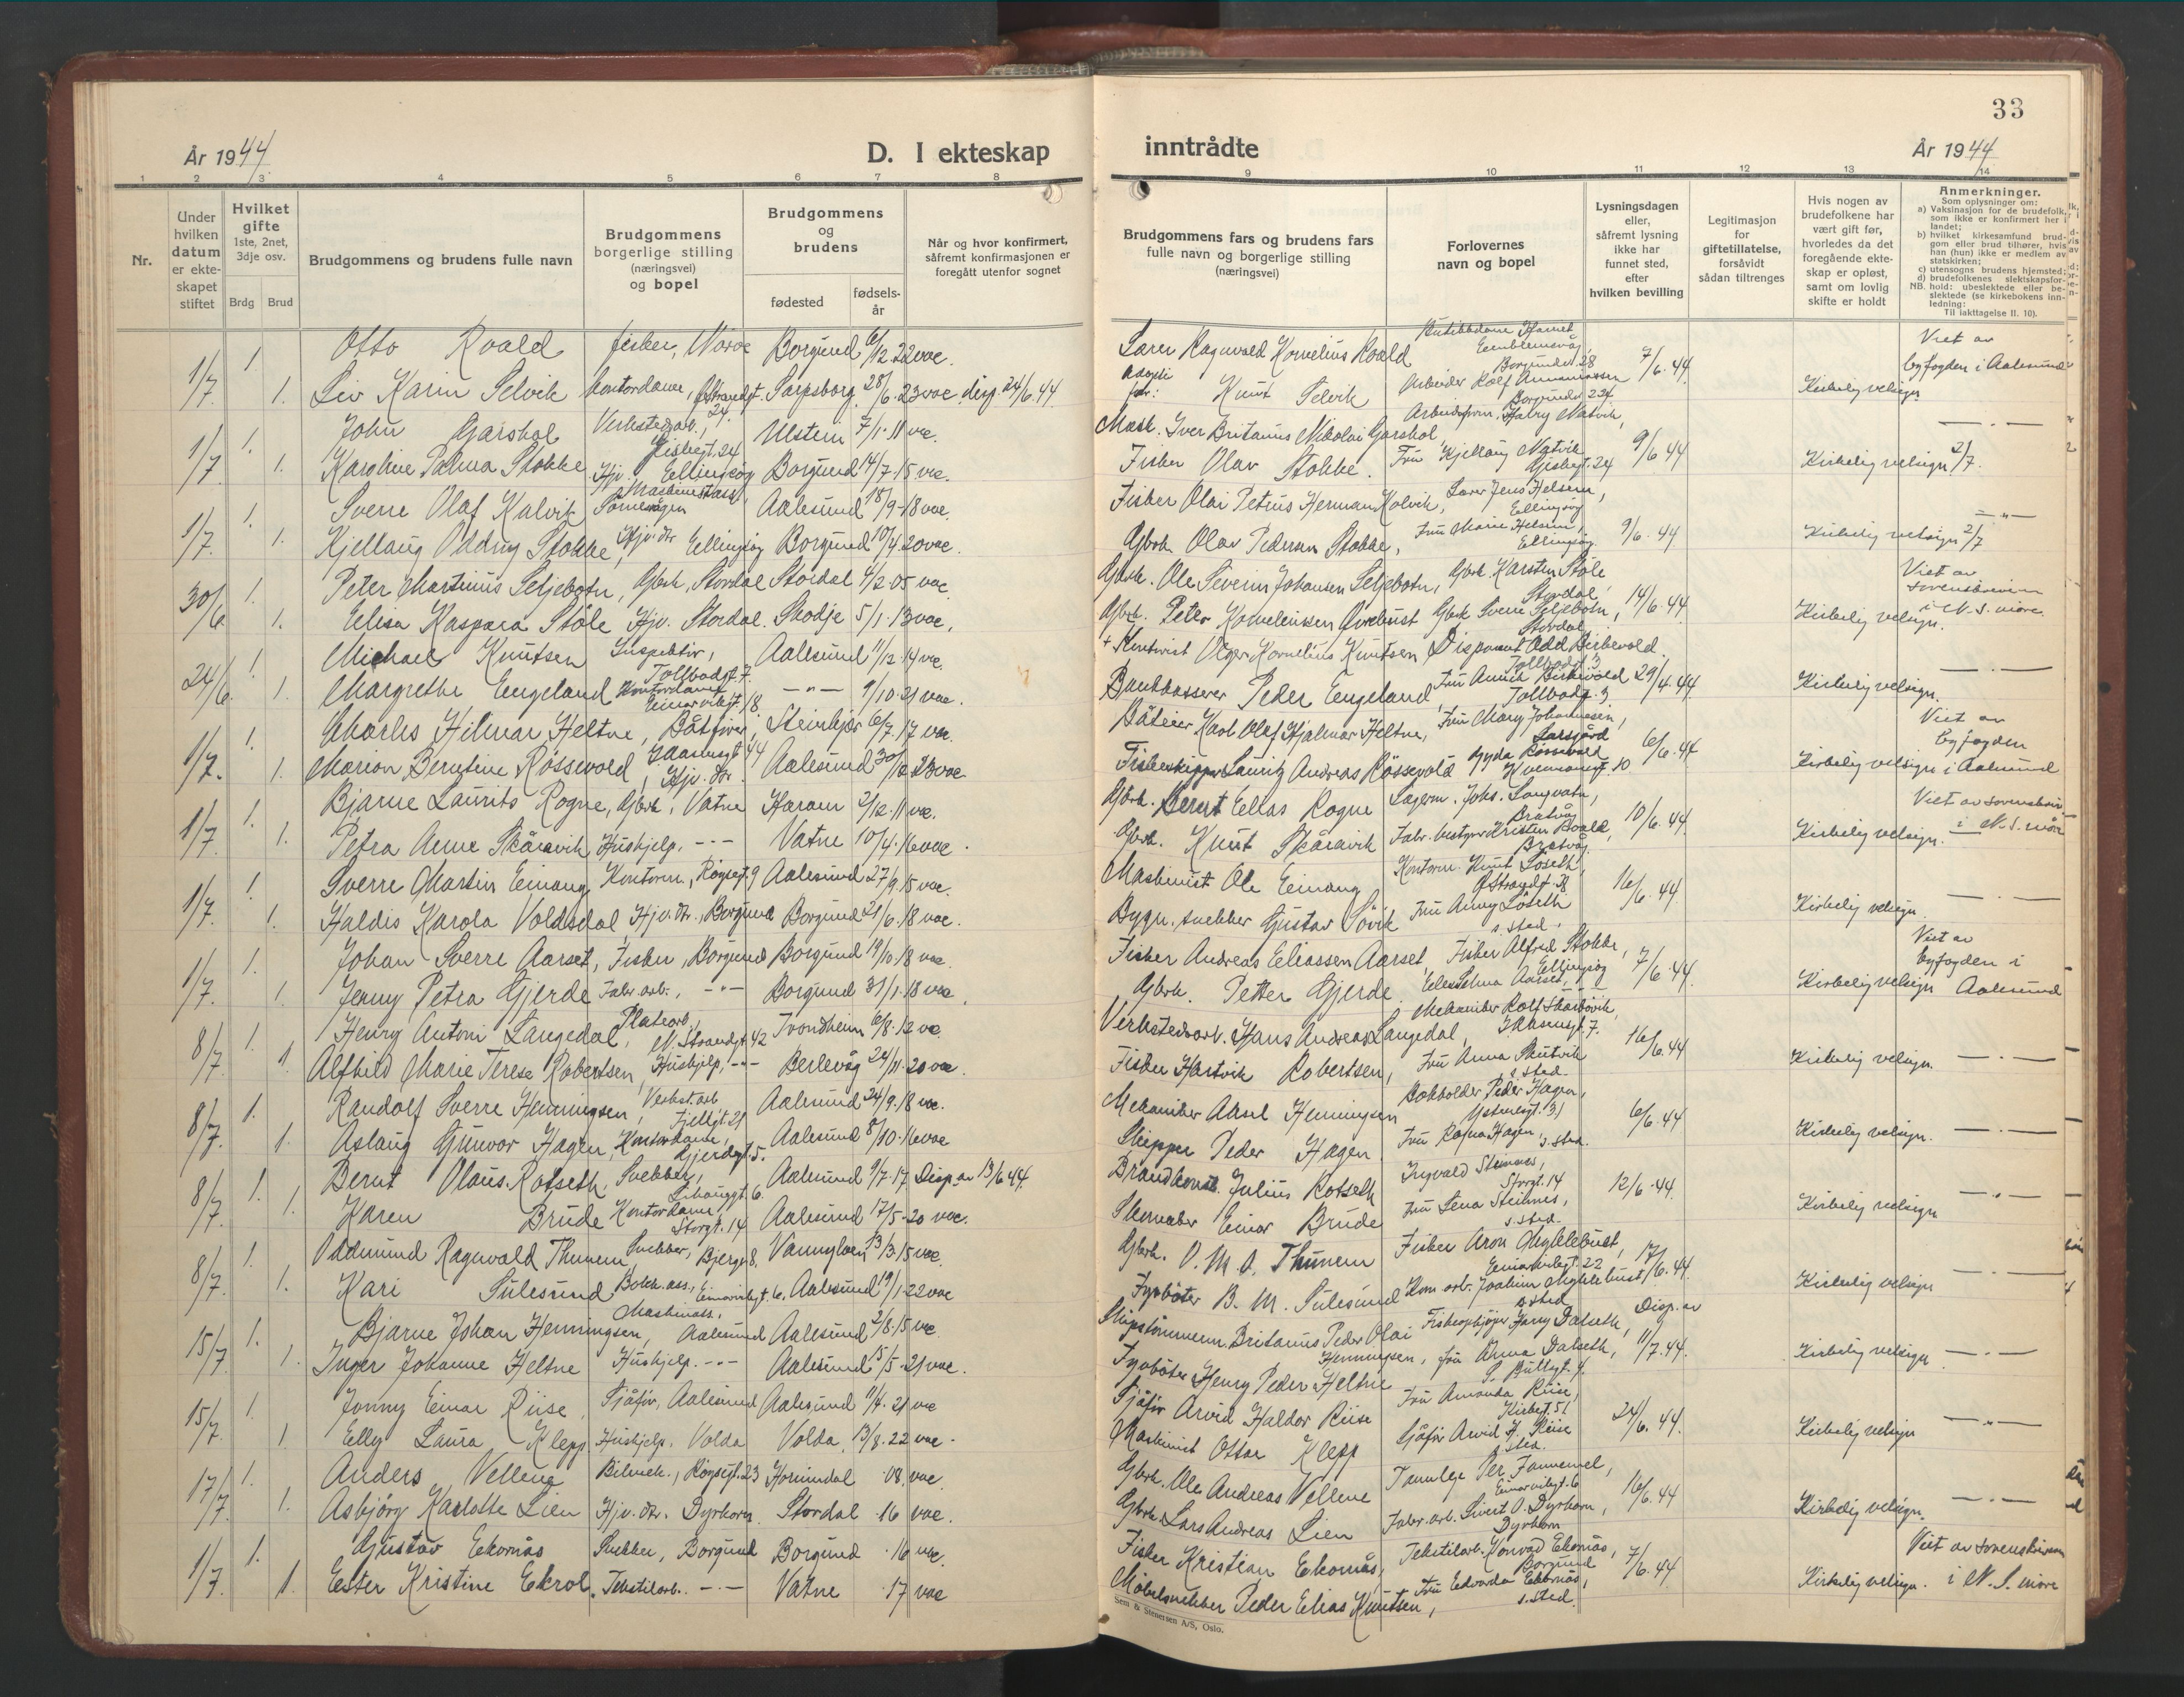 33
År 1944
D. I ekteskap
inntrådte
År 1944
1 2 3 4 5 6 7 8
9 10 11 12 13 14
Nr.
Under hvilken datum er ekteskapet stiftet
Hvilket gifte
1ste, 2net, 3dje osv.
Brdg Brud
Brudgommens og brudens fulle navn
Brudgommens borgerlige stilling (næringsvei) og bopel
Brudgommens og brudens
fødested
fødselsår
Når og hvor konfirmert, såfremt konfirmasjonen er foregått utenfor sognet
Brudgommens fars og brudens fars fulle navn og borgerlige stilling (næringsvei)
Forlovernes navn og bopel
Lysningsdagen eller, såfremt lysning ikke har funnet sted, efter hvilken bevilling
Legitimasjon for giftetillatelse, forsåvidt sådan tiltrenges
Hvis nogen av brudefolkene har vært gift før, hvorledes da det foregående ekteskap er opløst, samt om lovlig skifte er holdt
Anmerkninger.
Som oplysninger om:
a) Vaksinasjon for de brudefolk, som ikke er konfirmert her i landet;
b) hvilket kirkesamfund brudgom eller brud tilhører, hvis han (hun) ikke er medlem av statskirken;
c) utensogns brudens hjemsted;
d) brudefolkenes slektskapsforhold: ubeslektede eller beslektede (se kirkebokens innledning:
NB.
Til iakttagelse II. 10).
1/7 1. Otto Roald fisker, Borgund 6/12 22 vac.
Lærer Ragnvald Kornelius Roald 7/6 44 Viet av byfogden i Aalesund
1. Liv Karin Selvik kontordame, Sarpsborg 28/6 23 vac disp. 24/6 44
Knut Selvik Kirkelig velsign.
1/7 1. John Garshol Verkstedarb., Ulstein 7/1 11 vac.
Mask. Iver Britanus Nikolai Garshol 9/6 44 — " —
1. Karoline Palma Stokke Hjv. Ellingsøy Borgund 14/7 15 vac.
Fisker Olav Stokke. Gisbegt. 24 Kirkelig velsign 2/7.
1/7 1. Sverre Olaf Kalvik Aalesund 18/9 18 vac.
Fisker Olai Petrus Herman Kalvik, Ellingsøy 9/6 44 — " —
1. Kjellaug Oddny Stokke, Hjv. dtr Ellingsøy Borgund 10/4 20 vac.
Gbrk Olav Pedersen Stokke, Ellingsøy Kirkelig velsign 2/7
30/6 1. Peter Martinus Seljebotn, Gbrk, Stordal Stordal 4/2 05 vac.
Gbrk. Ole Severin Johansen Seljebotn, Gbrk. Karsten Støle Stordal, 14/6 44 Viet av sorenskriveren i N. S. møre
1. Elisa Kaspara Støle Hjv. Stordal. Skodje 5/1 13 vac.
Gbrk. Peter Kornelius Gbrk Sverre Seljebotn, Stordal Kirkelig velsign.
24/6 1. Michael Knutsen Inspektør, Tollbodgt. 7 Aalesund 11/12 14 vac.
Olger Kornelius Knutsen Disponent Odd Birkevold. Tollbodgt 3 29/4 44 — . —
1. Margrethe Engeland Kontordame — " — 9/10 21 vac.
Bankkasserer Peder Engeland, Fru Annik Birkevold Tollbodgt. 3 Kirkelig velsign.
1/7. 1. Charles Hilmar Heltne, Båtfører, Steinkjer 6/7 17 vac.
Båteier Karl Olaf Hjalmar Heltne, Fru Mary Johannesen, 6/6 44 Viet av byfogden i Aalesund
1. Marion Berntine Røssevold, Hjv. dtr. Aalesund 30/12 23 vac
Fiskeskipper Lauritz Andreas Røssevold Gyda Røssevold Kirkelig velsign
1/7 1. Bjarne Laurits Rogne, Gbrk, Vatne Haram 2/12 11 vac.
Gbrk. Bernt Elias Rogne Lagerm. Johs. Langvatn, Brattvåg 10/6 44 Viet av sorenskriv. i N. S. møre
1. Petra Anne Skåravik Hushjelp. — " — Vatne 10/4 16 vac.
Gbrk. Knut Skåravik Fabr. bestyrer Kristen Roald, Brattvåg Kirkelig velsign.
1/7. 1. Sverre Martin Einang Kontorm., Røysegt. 9 Aalesund 27/9 15 vac.
Maskinist Ole Einang Kontorm. Knut Løseth, 16/6 44 — " —
1. Haldis Karola Voldsdal Hjv. dtr., Borgund Borgund 21/6 18 vac.
Bygn. snekker Gustav Søvik Fru Anny Løseth s. sted. Kirkelig velsign
1/7. 1. Johan Sverre Aarset, Fisker, Borgund Borgund 19/10 18 vac.
Fisker Andreas Eliassen Aarset, Fisker Alfred Stokke, Ellingsøy 7/6 44. Viet av byfogden i Aalesund
1. Jenny Petra Gjerde Fabr. arb., — " — Borgund 31/1 18 vac.
Gbrk. Petter Gjerde. Kirkelig velsign
8/7. 1. Henry Antoni Langedal, Platearb., N. Strandgt 42 Trondheim 6/8 12 vac.
Verkstedarb. Hans Andreas Langedal, 16/6 44
1. Alfhild Marie Terese Robertsen Hushjelp, — " — Berlevåg 24/11 20 vac.
Fisker Hartvik Robertsen, Fru Anna s. sted. Kirkelig velsign. — . —
8/7. 1. Randolf Sverre Henningsen, Verkst. arb Fjellgt. 21 Aalesund 24/9 18 vac.
Mekaniker Aksel Henningsen Bokholder Peder Hagen, 6/6 44
1. Aslaug Gunvor Hagen, Kontordame, Gjerdegt. 5. Aalesund 8/10 16 vac
Skipper Peder Hagen Fru Ragna Hagen, s. sted. Kirkelig velsign. — . —
8/7. 1. Bernt Olaus Rotseth, Snekker, Aalesund 9/7 17 Disp. av 13/6 44.
Julius Rotseth Ingvald Steinnes, Storgt. 14 12/6 44.
1. Karen Brude Kontordame, Storgt. 14 Aalesund 17/5 20 vac.
Skomaker Einar Brude Fru Lena Steinnes, s. sted. Kirkelig velsign — . —
8/7 1. Oddmund Ragnvald Thunem Snekker, Bjergt. 8. Vannylven 13/3 15 vac.
Gbrk. O. M. O. Thunem Fisker Aron Myklebust, 17/6 44.
1. Kari Sulesund Aalesund 19/1 22 vac
Fyrbøter B. M. Sulesund Joakim Myklebust s. sted Kirkelig velsign — . —
15/7 1. Bjarne Johan Henningsen, Aalesund Aalesund 2/8 15 vac.
Skipstømmerm. Britanus Peder Olai Henningsen, Harry Dalseth, Disp. av 11/7 44.
1. Inger Johanne Heltne Hushjelp. — " — Aalesund 15/5 21 vac.
Fyrbøter Henry Peder Heltne Fru Anna Dalseth, Kirkelig velsign — . —
15/7. 1. Jonny Einar Riise Sjåfør, Aalesund Aalesund 11/4 21 vac
Sjåfør Arvid Haldor Riise Fru Amanda Riise, Kirkegt. 51 24/6 44.
1. Elly Laura Klepp Hushjelp. Volda Volda, 13/8 22 vac.
Maskinist Ottar Klepp Sjåfør Arvid H. Riise s. sted. Kirkelig velsign — " —
17/7. 1. Anders Vellene Bilmek., Røysegt. 23 Hornindal 08. vac.
Gbrk. Ole Andreas Vellene Tannlege Per 16/6 44
1. Asbjørg Karlotte Lien Hjv. dtr. Dyrkorn. Stordal 16 vac.
Gbrk. Lars Andreas Lien Fabr. arb. Sivert O. Dyrkorn, Dyrkorn Kirkelig velsign. — . —
1/7. 1. Gustav Ekornås Snekker, Borgund Borgund 16 vac.
Fisker Kristian Ekornås, Tekstilarb. Konrad Ekornås, Borgund 7/6 44 Viet av sorenskriveren i N. S. møre
1. Ester Kristine Ekrol. Tekstilarb. — " — Vatne 17 vac
Møbelsnekker Peder Elias Knutsen, Fru Edvarda Ekornås, s. sted. Kirkelig velsign.
Sem & Stenersen A/S, Oslo.